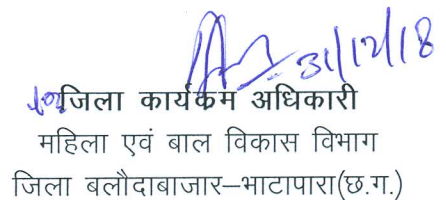 31/12/18
जिला कार्यक्रम अधिकारी
महिला एवं बाल विकास विभाग
जिला बलौदाबाजार–भाटापारा(छ.ग.)